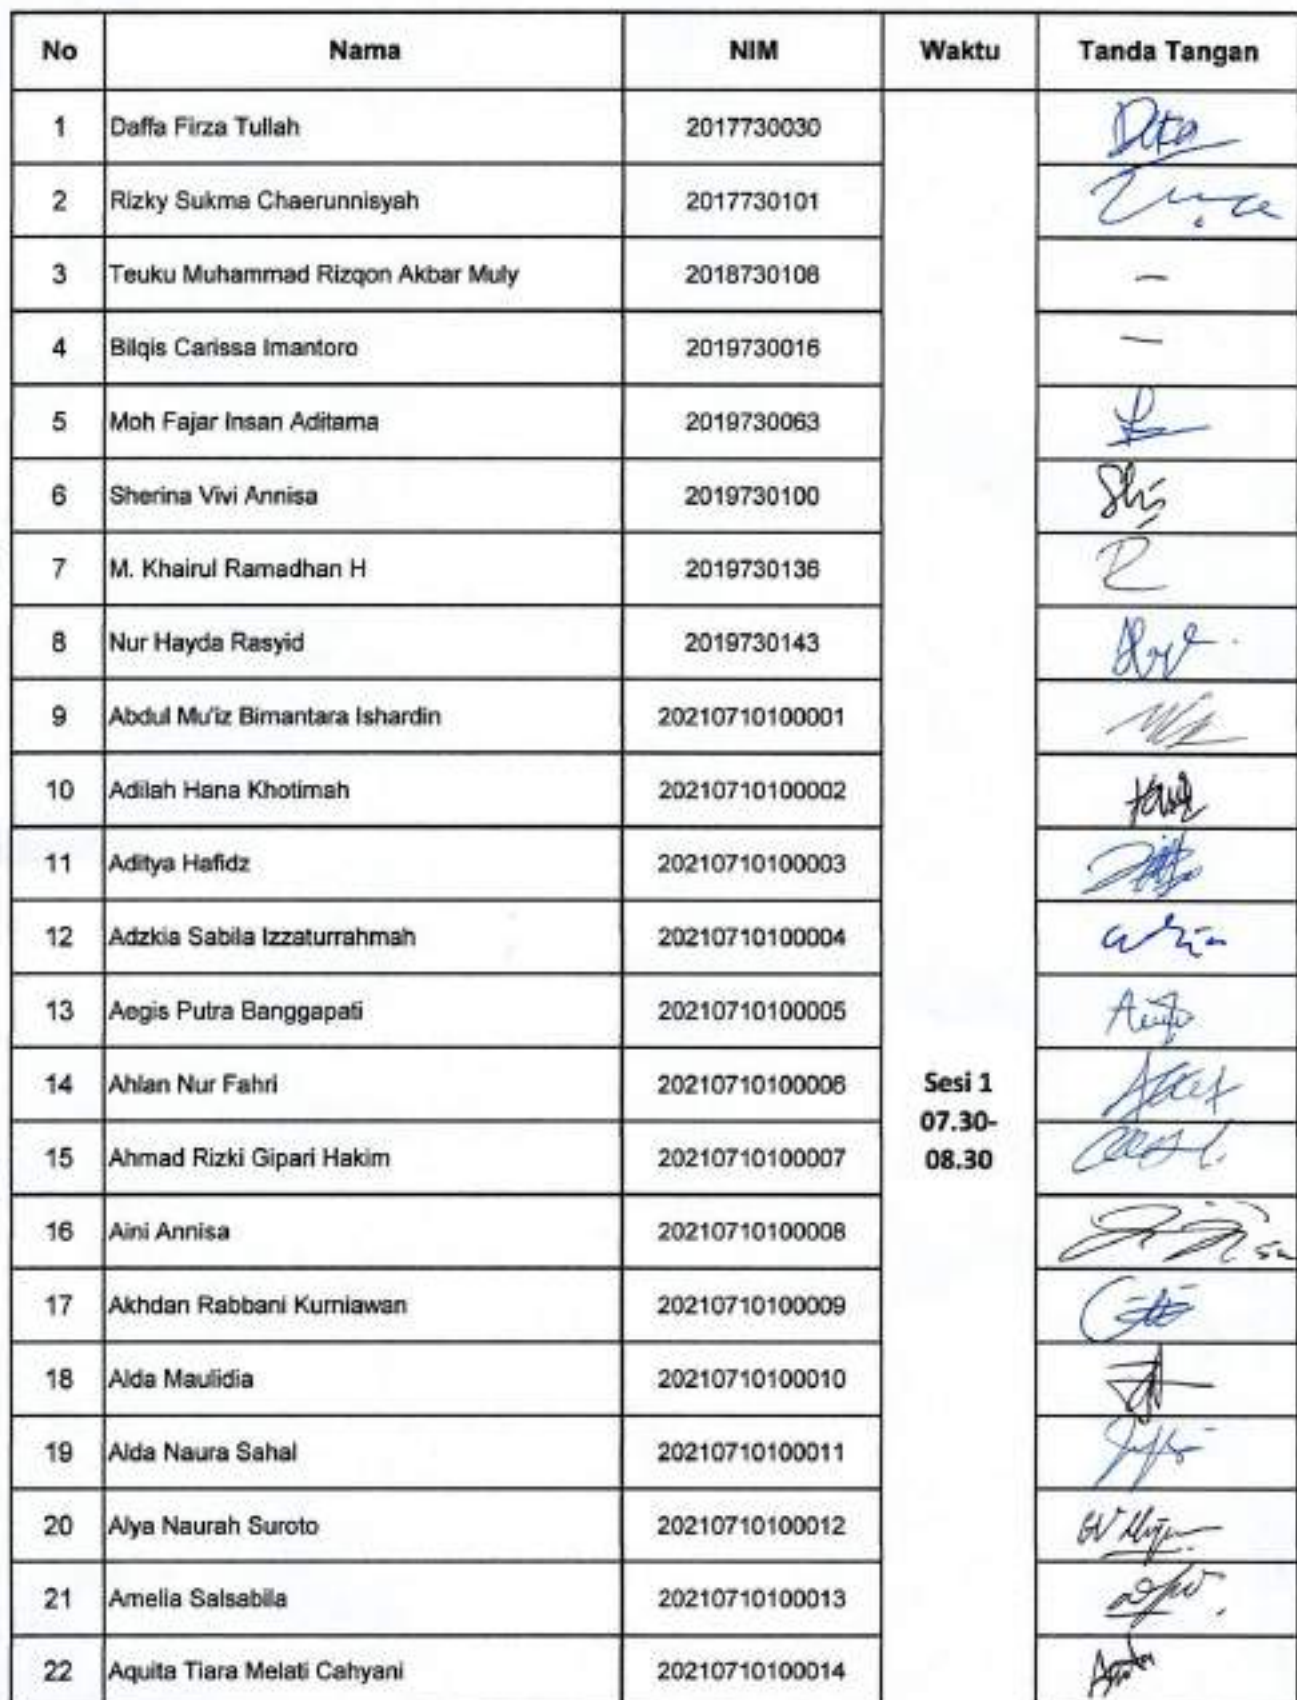 No Nama NIM Waktu Tanda Tangan
1 Daffa Firza Tullah 2017730030
2 Rizky Sukma Chaerunnisyah 2017730101
3 Teuku Muhammad Rizqon Akbar Muly 2018730108 –
4 Bilqis Carissa Imantoro 2019730016 –
5 Moh Fajar Insan Aditama 2019730063
6 Sherina Vivi Annisa 2019730100
7 M. Khairul Ramadhan H 2019730136
8 Nur Hayda Rasyid 2019730143
9 Abdul Mu'iz Bimantara Ishardin 20210710100001
10 Adilah Hana Khotimah 20210710100002
11 Aditya Hafidz 20210710100003
12 Adzkia Sabila Izzaturrahmah 20210710100004
13 Aegis Putra Banggapati 20210710100005
14 Ahlan Nur Fahri 20210710100006 Sesi 1
07.30-
15 Ahmad Rizki Gipari Hakim 20210710100007 08.30
16 Aini Annisa 20210710100008
17 Akhdan Rabbani Kurniawan 20210710100009
18 Alda Maulidia 20210710100010
19 Alda Naura Sahal 20210710100011
20 Alya Naurah Suroto 20210710100012
21 Amelia Salsabila 20210710100013
22 Aquita Tiara Melati Cahyani 20210710100014